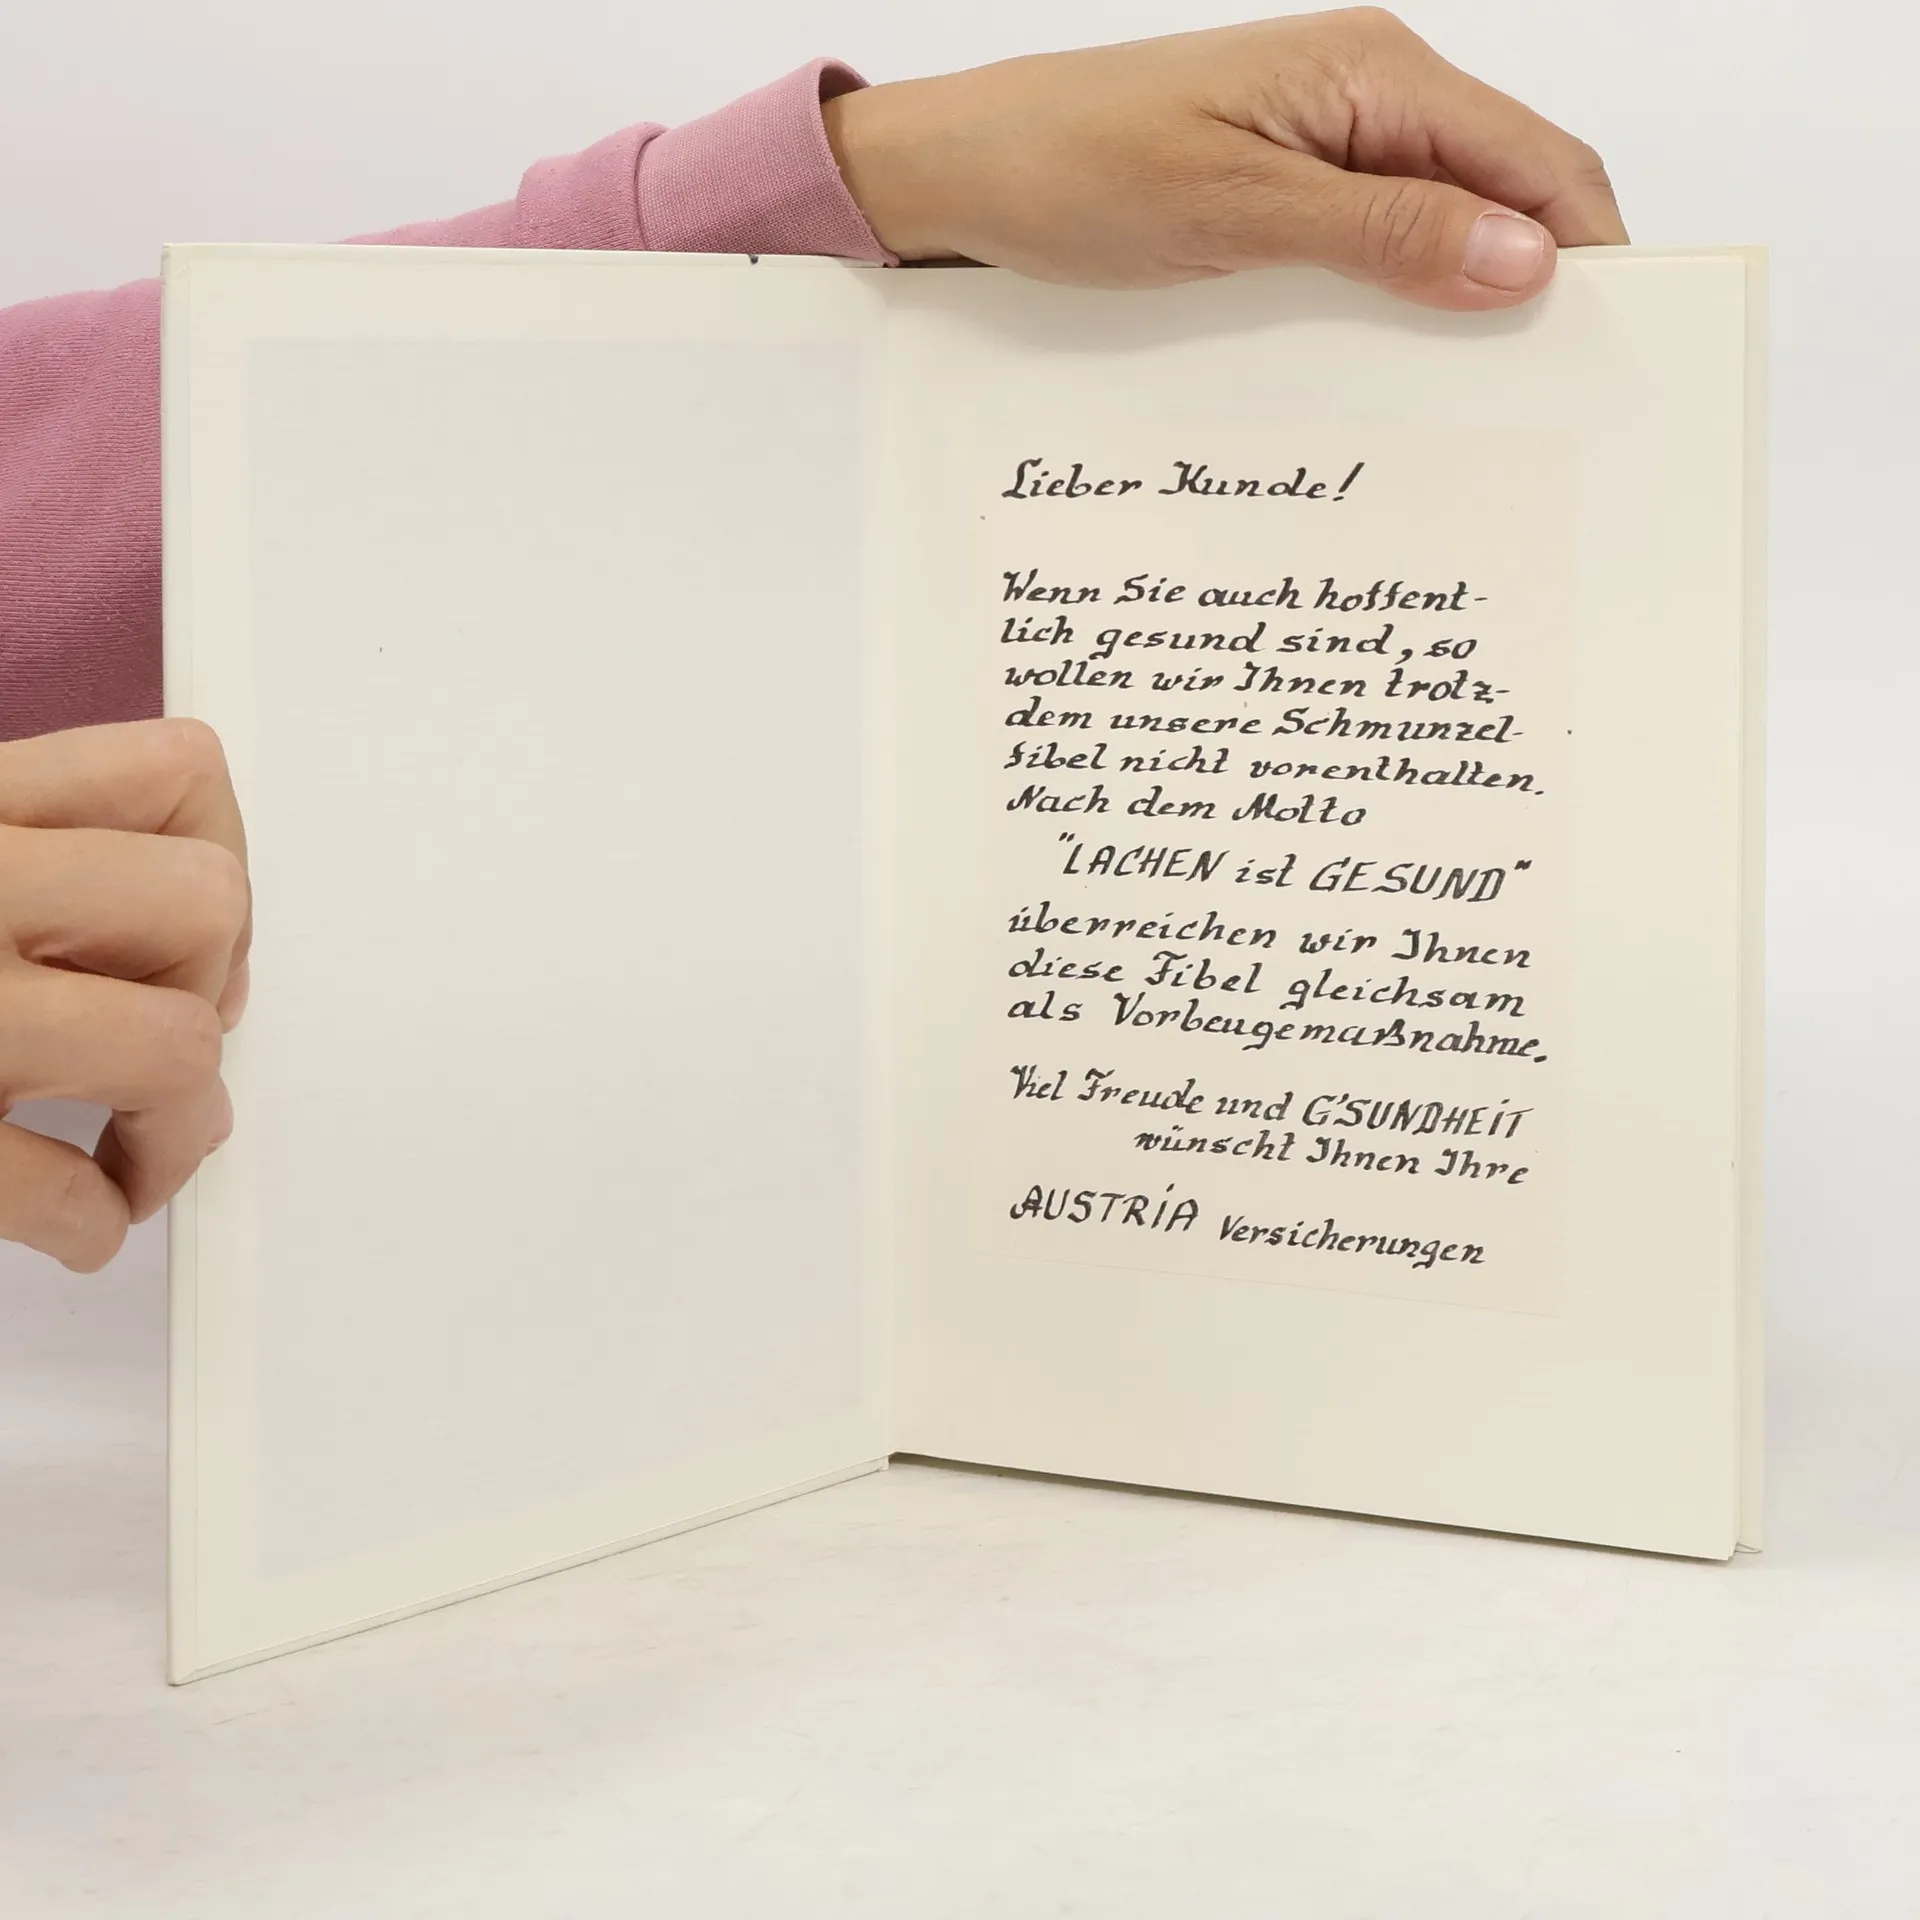 Lieber Kunde!
Wenn Sie auch hoffent-
lich gesund sind, so
wollen wir Ihnen trotz-
dem unsere Schmunzel-
fibel nicht vorenthalten.
Nach dem Motto
"LACHEN ist GESUND"
überreichen wir Ihnen
diese Fibel gleichsam
als Vorbeugemaßnahme.
Viel Freude und G'SUNDHEIT
wünscht Ihnen Ihre
AUSTRIA Versicherungen